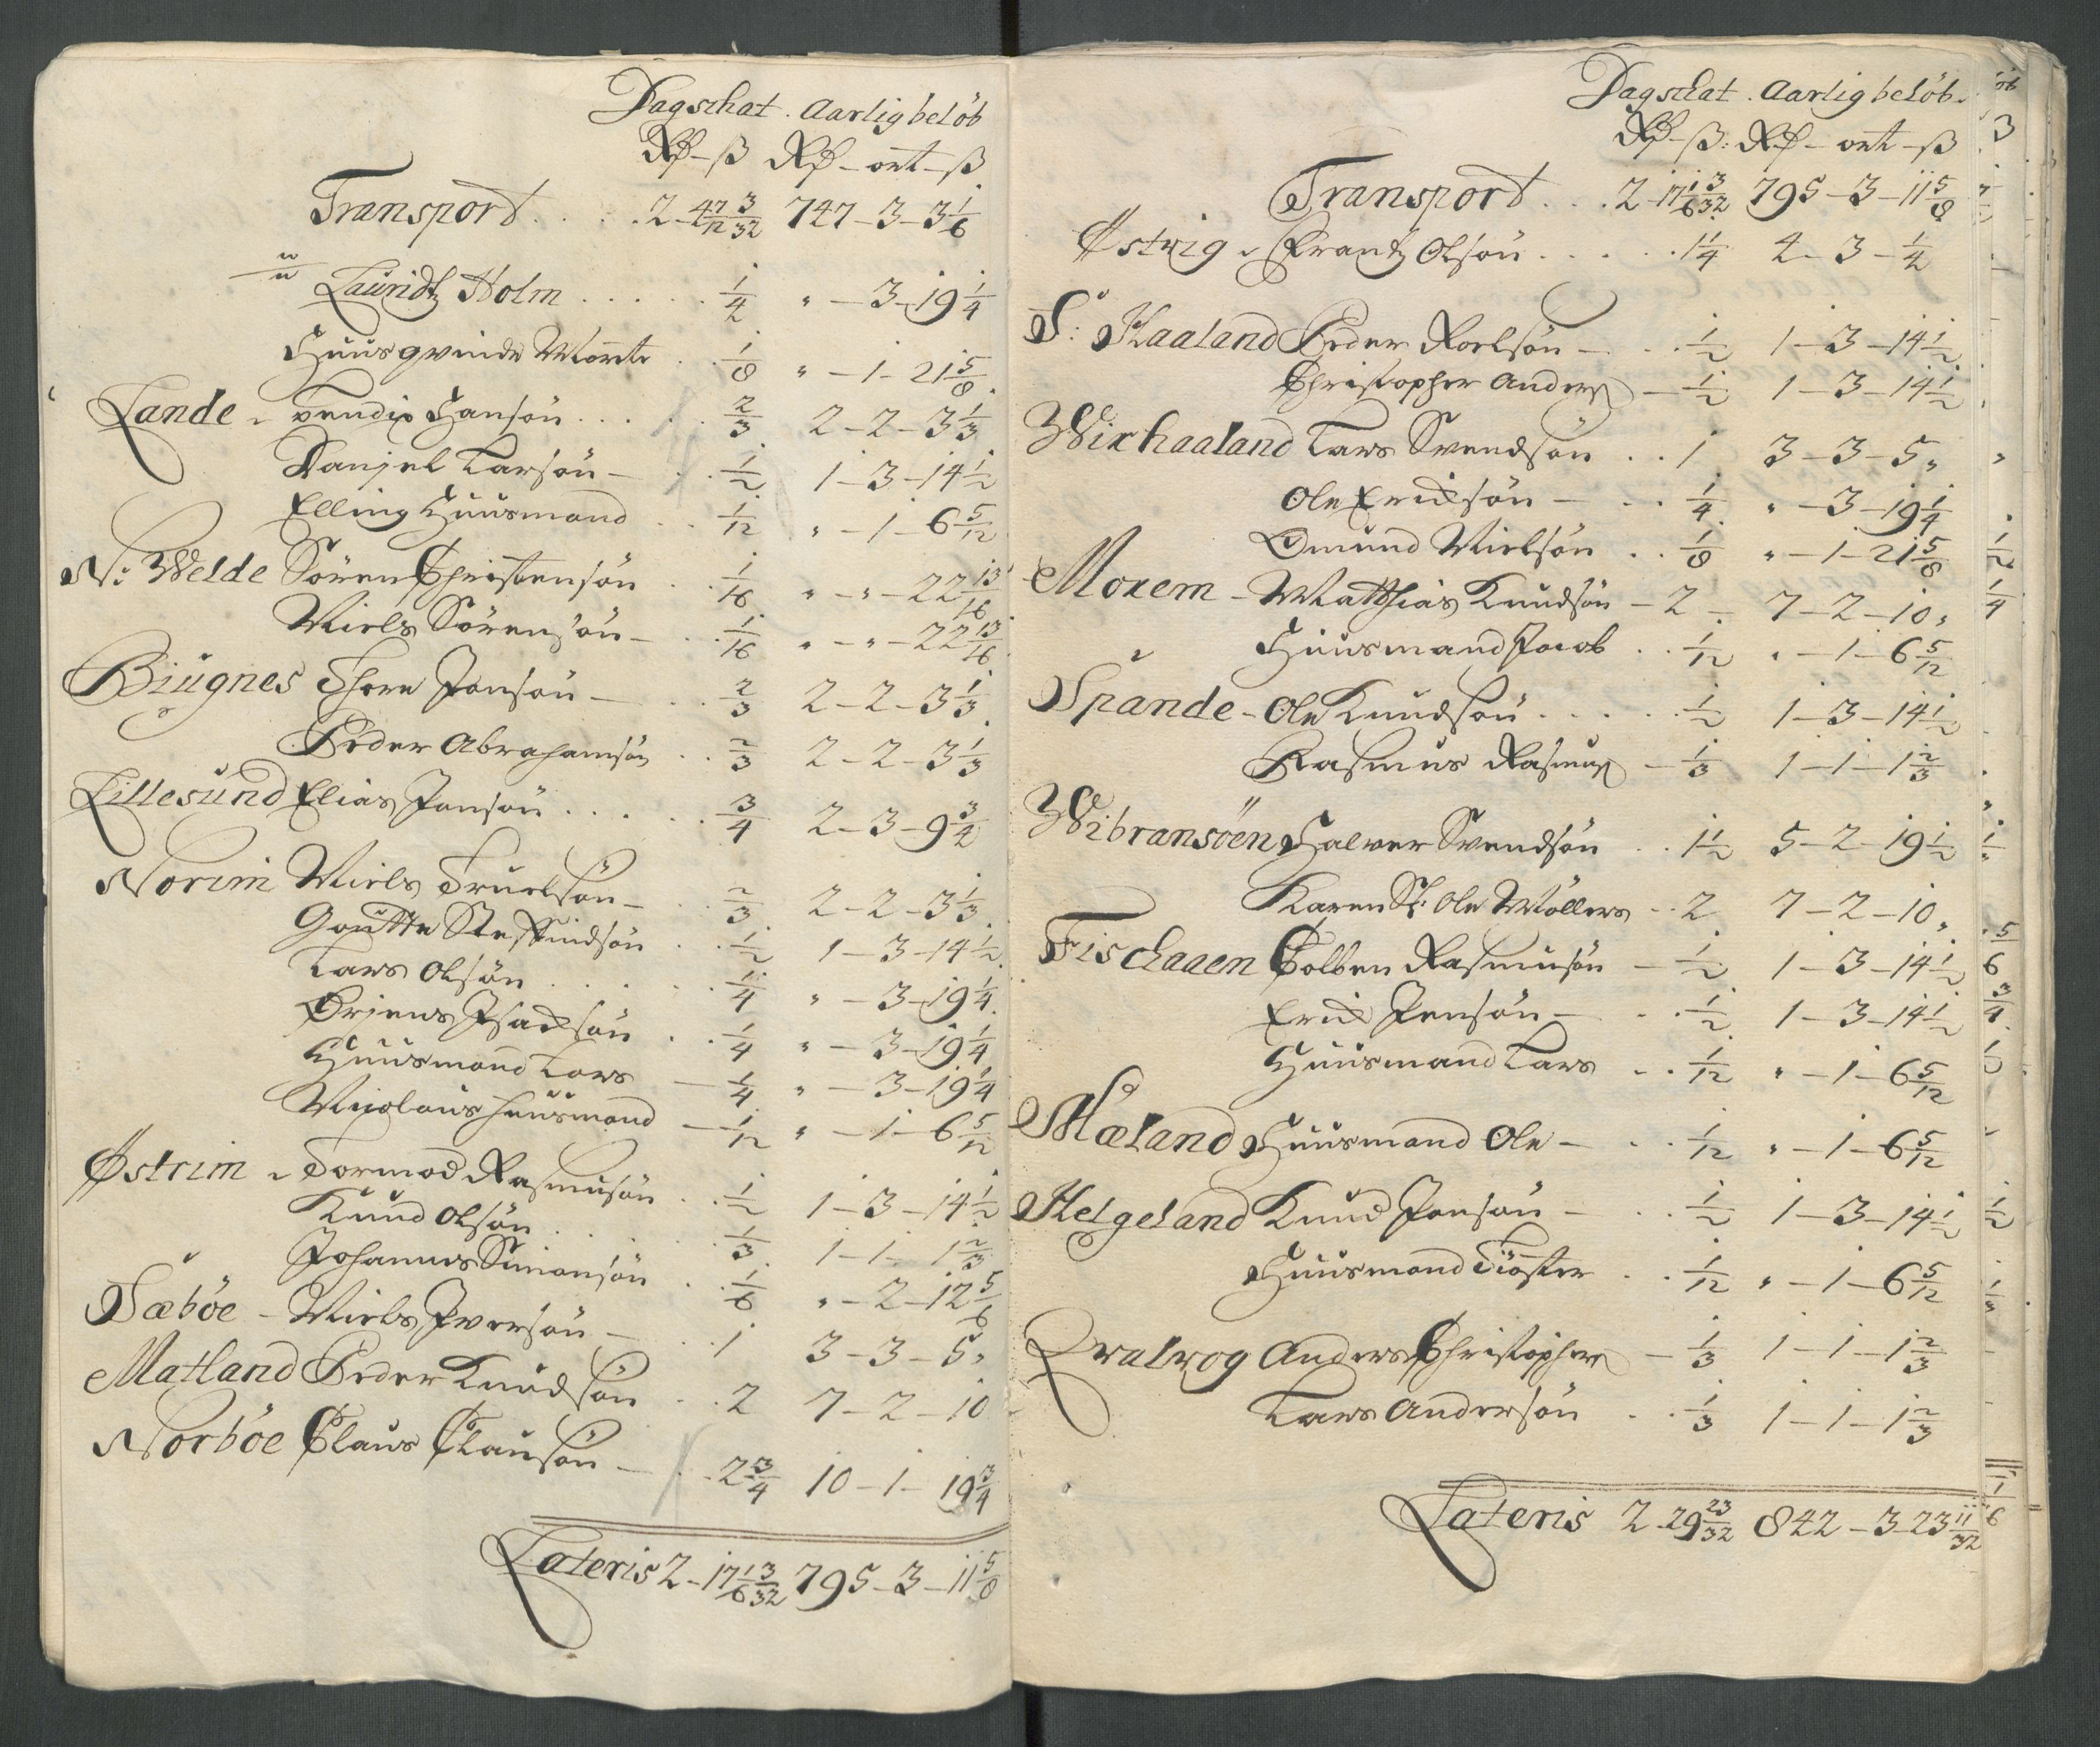 Dagschat . Aarlig belöb
Rd - ß Rd - ort - ß
Transport . . . . 2 - 4 7/12 3/32 747 - 3 - 3 1/6
Lauridtz Holm . . . . . 1/4 " - 3 - 19 1/4
Huusqvinde Marite . 1/8 " - 1 - 21 5/8
Lande - Bendix Hansön . . . . 2/3 2 - 2 - 3 1/3
Danjel Larsön - . . 1/2 1 - 3 - 14 1/2
Elling Huusmand . . 1/12 " - 1 - 6 5/12
N: Welde Sören Christensön . 1/16 " - " - 22 13/16
Niels Sörensön - . . 1/16 " - " - 22 13/16
Biugnes Thore Jonsön - . . 2/3 2 - 2 - 3 1/3
Peder Abrahamsön . . 2/3 2 - 2 - 3 1/3
Lillesund Elias Jonsön . . . . . 3/4 2 - 3 - 9 3/4
Norim Niels Truelsön - . . 2/3 2 - 2 - 3 1/3
Goutte Steffindsön . . 1/2 1 - 3 - 14 1/2
Lars Olsön . . . . . . 1/4 " - 3 - 19 1/4
Örjens Isachsön . . . 1/4 " - 3 - 19 1/4
Huusmand Lars - 1/4 " - 3 - 19 1/4
Nicolaus huusmand - 1/12 " - 1 - 6 5/12
Østrim - Tormod Rasmusön . . 1/2 1 - 3 - 14 1/2
Knud Olsön . . . . . 1/3 1 - 1 - 1 2/3
Johannes Simonsön . . 1/6 " - 2 - 12 5/6
Sæböe - Niels Iversön - . . 1 3 - 3 - 5 "
Matland Peder Knudsön . . 2 7 - 2 - 10
Norböe Claus Clausön - . . 2 3/4 10 - 1 - 19 3/4
Lateris 2 - 17 1/6 3/32 795 - 3 - 11 5/8
Dagschat . Aarlig belöb.
Rd - ß: Rd - ort - ß
Transport . . . 2 - 17 1/6 3/32 795 - 3 - 11 5/8
Østvig - Frantz Olsön . . . . . 1 1/4 4 - 3 - 1/4
S: Haaland Peder Roelsön - . . 1/2 1 - 3 - 14 1/2
Christopher Anderß - 1/2 1 - 3 - 14 1/2
Wixhaaland Lars Svendsön . . 1 3 - 3 - 5 "
Ole Erichsön - . . 1/4 " - 3 - 19 1/4
Omund Nielsön . . 1/8 " - 1 - 21 5/8
Moxem - Matthias Knudsön - 2 - 7 - 2 - 10 "
Huusmand Jacob . . 1/12 " - 1 - 6 5/12
Spande - Ole Knudsön . . . . . 1/2 1 - 3 - 14 1/2
Rasmus Rasmuß - 1/3 1 - 1 - 1 2/3
Wibransöen Halver Svendsön . . 1 1/2 5 - 2 - 19 1/2
Karen Sl: Ole Möllers . . 2 7 - 2 - 10 "
Fischaaen Colben Rasmusön - 1/2 1 - 3 - 14 1/2
Erich Jensön - . . 1/2 1 - 3 - 14 1/2
Huusmand Lars . . 1/12 " - 1 - 6 5/12
Mæland Huusmand Ole - . . 1/12 " - 1 - 6 5/12
Helgeland Knud Jonsön - . . 1/2 1 - 3 - 14 1/2
Huusmand Tiöster . . 1/12 " - 1 - 6 5/12
Qvalvog Anders Christopherß - 1/3 1 - 1 - 1 2/3
Lars Andersön . . 1/3 1 - 1 - 1 2/3
Lateris 2 - 29 23/32 842 - 3 - 23 11/32